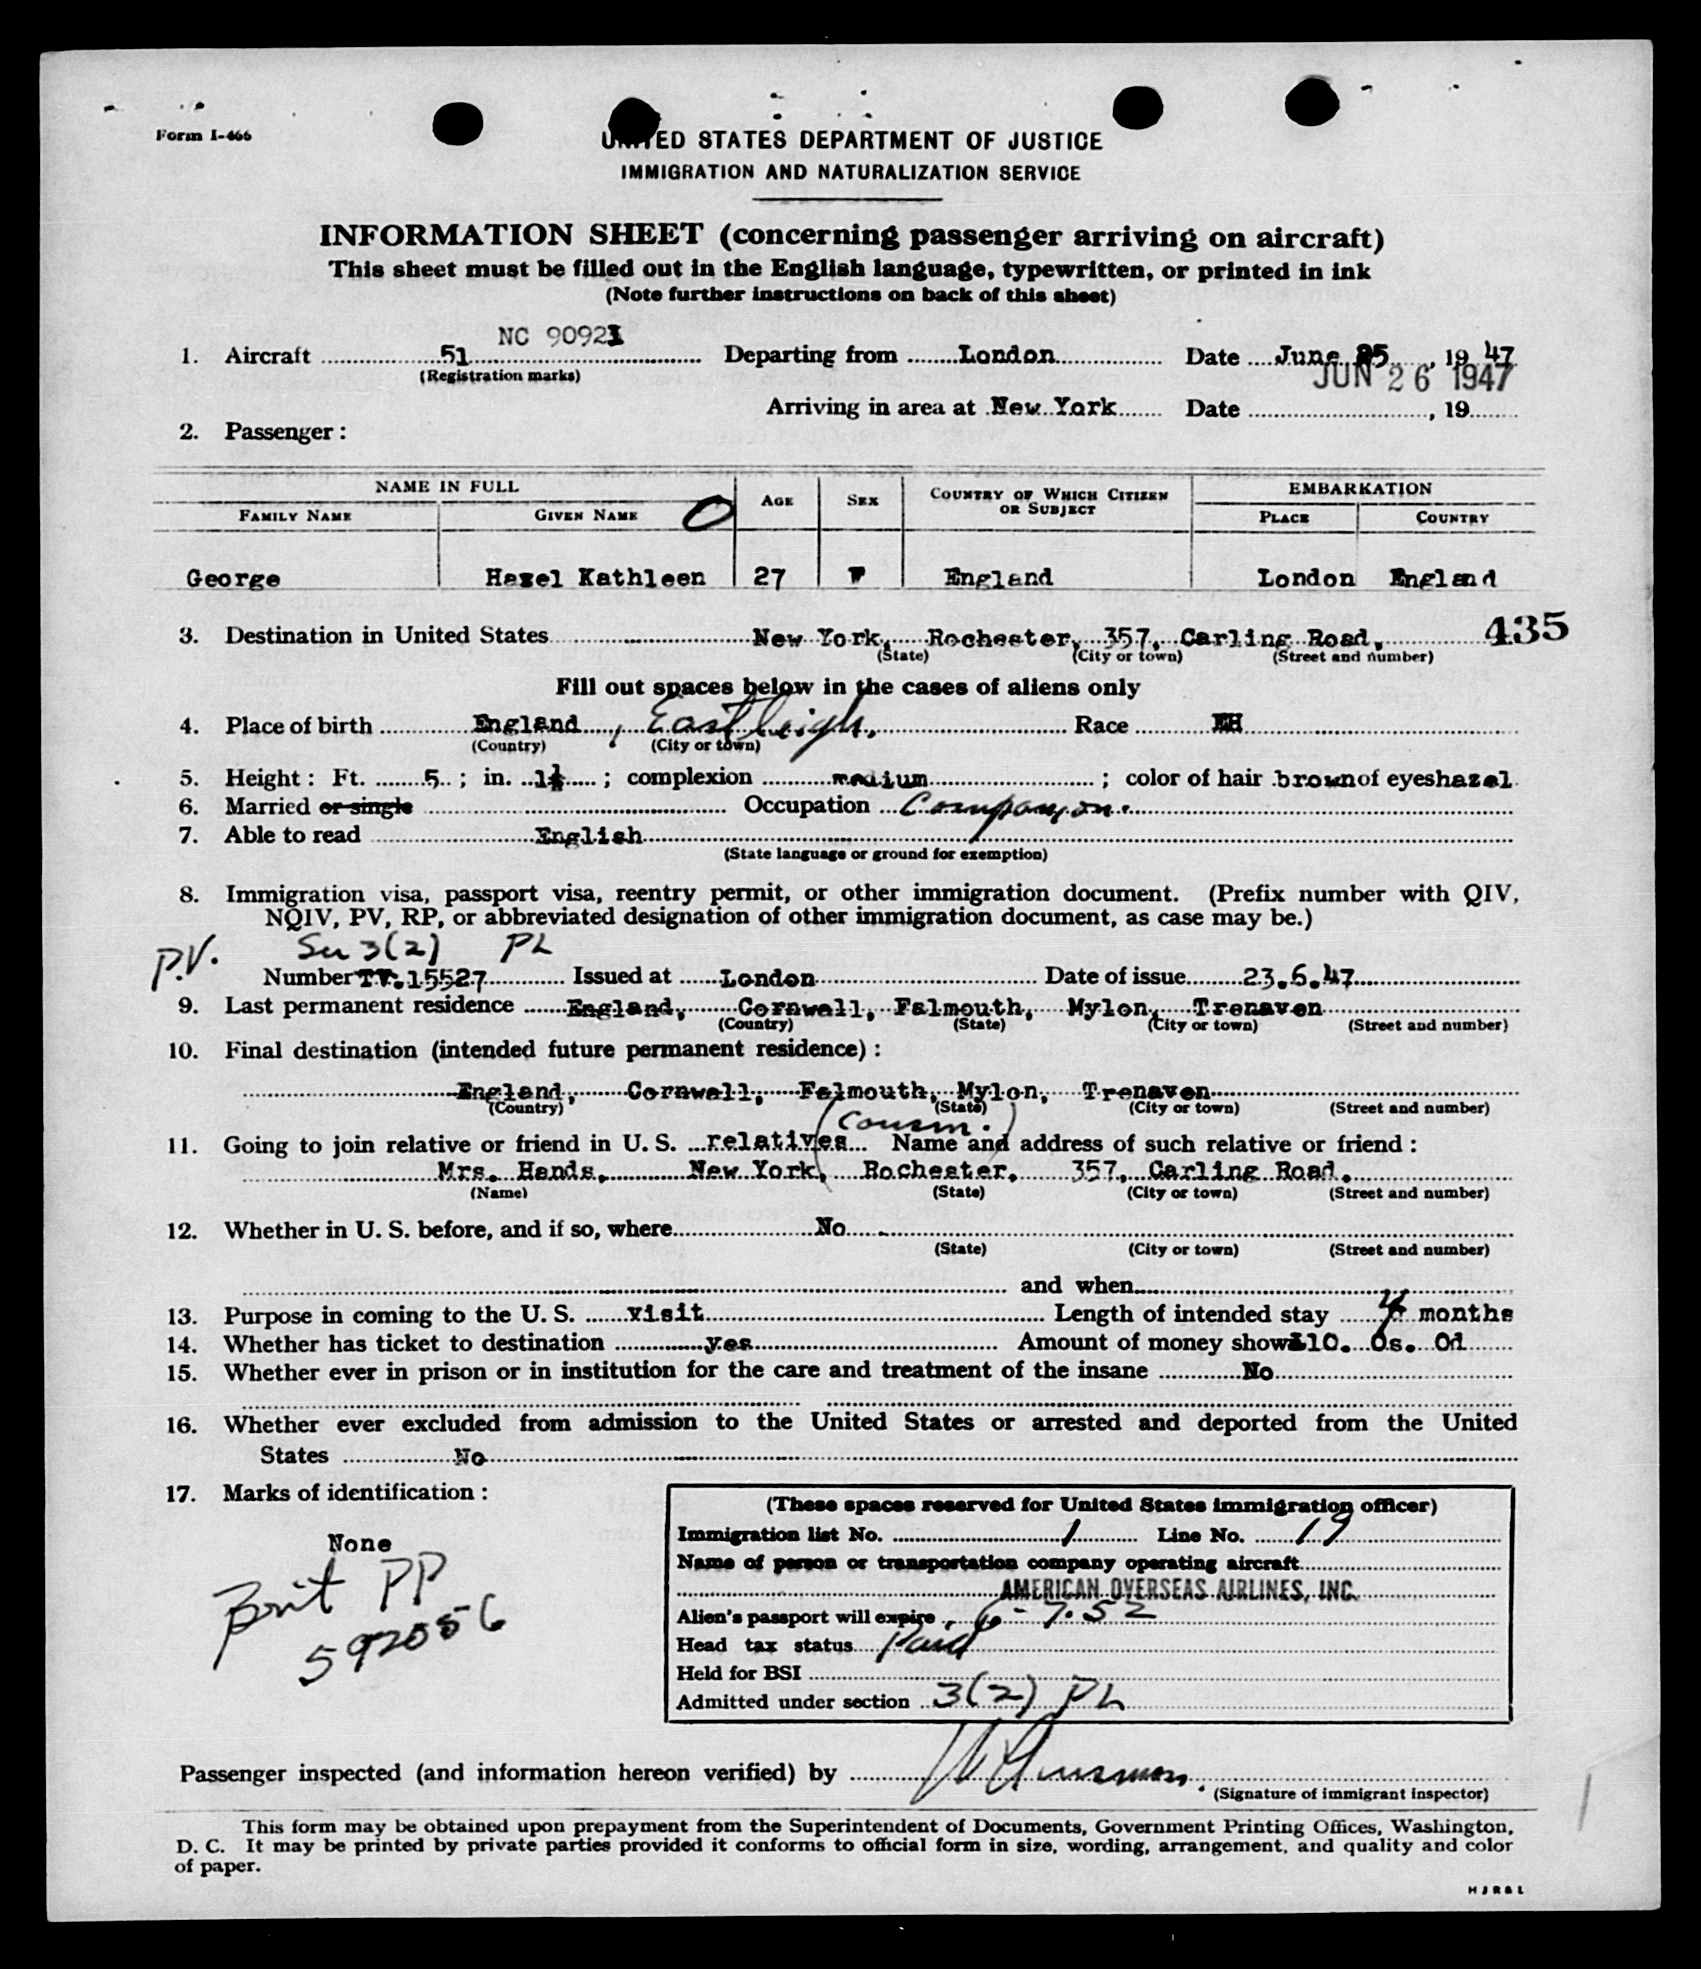 Form I-466
UNITED STATES DEPARTMENT OF JUSTICE
IMMIGRATION AND NATURALIZATION SERVICE
INFORMATION SHEET (concerning passenger arriving on aircraft)
This sheet must be filled out in the English language, typewritten, or printed in ink
(Note further instructions on back of this sheet)
NC 90921
1. Aircraft 51 Departing from London Date June 25, 19 47
(Registration marks) JUN 26 1947
Arriving in area at New York Date , 19
2. Passenger:
NAME IN FULL AGE SEX COUNTRY OF WHICH CITIZEN OR SUBJECT EMBARKATION
FAMILY NAME GIVEN NAME O PLACE COUNTRY
George Hazel Kathleen 27 F England London England
3. Destination in United States New York, Rochester, 357, Carling Road, 435
(State) (City or town) (Street and number)
Fill out spaces below in the cases of aliens only
4. Place of birth England, Eastleigh. Race EH
(Country) (City or town)
5. Height: Ft. 5; in. 1½; complexion medium; color of hair brown of eyes hazel
6. Married or single Occupation Companion.
7. Able to read English
(State language or ground for exemption)
8. Immigration visa, passport visa, reentry permit, or other immigration document. (Prefix number with QIV,
NQIV, PV, RP, or abbreviated designation of other immigration document, as case may be.)
P.V. 3(2) PL
Number TV.15527 Issued at London Date of issue 23.6.47
9. Last permanent residence England, Cornwall, Falmouth, Mylon, Trenaven
(Country) (State) (City or town) (Street and number)
10. Final destination (intended future permanent residence):
England, Cornwall, Falmouth, Mylon, Trenaven
(Country) (State) (City or town) (Street and number)
(Cousin.)
11. Going to join relative or friend in U. S. relatives Name and address of such relative or friend:
Mrs. Hands, New York, Rochester, 357, Carling Road.
(Name) (State) (City or town) (Street and number)
12. Whether in U. S. before, and if so, where No
(State) (City or town) (Street and number)
and when
13. Purpose in coming to the U. S. visit Length of intended stay months
14. Whether has ticket to destination yes Amount of money shown £10. 0s. 0d
15. Whether ever in prison or in institution for the care and treatment of the insane No
16. Whether ever excluded from admission to the United States or arrested and deported from the United
States No
17. Marks of identification:
None
Brit PP
592056
(These spaces reserved for United States immigration officer)
Immigration list No. 1 Line No. 19
Name of person or transportation company operating aircraft
AMERICAN OVERSEAS AIRLINES, INC.
Alien's passport will expire 6-7-52
Head tax status Paid
Held for BSI
Admitted under section 3(2) PL
Passenger inspected (and information hereon verified) by
(Signature of immigrant inspector)
This form may be obtained upon prepayment from the Superintendent of Documents, Government Printing Offices, Washington,
D. C. It may be printed by private parties provided it conforms to official form in size, wording, arrangement, and quality and color
of paper.
HJR&L